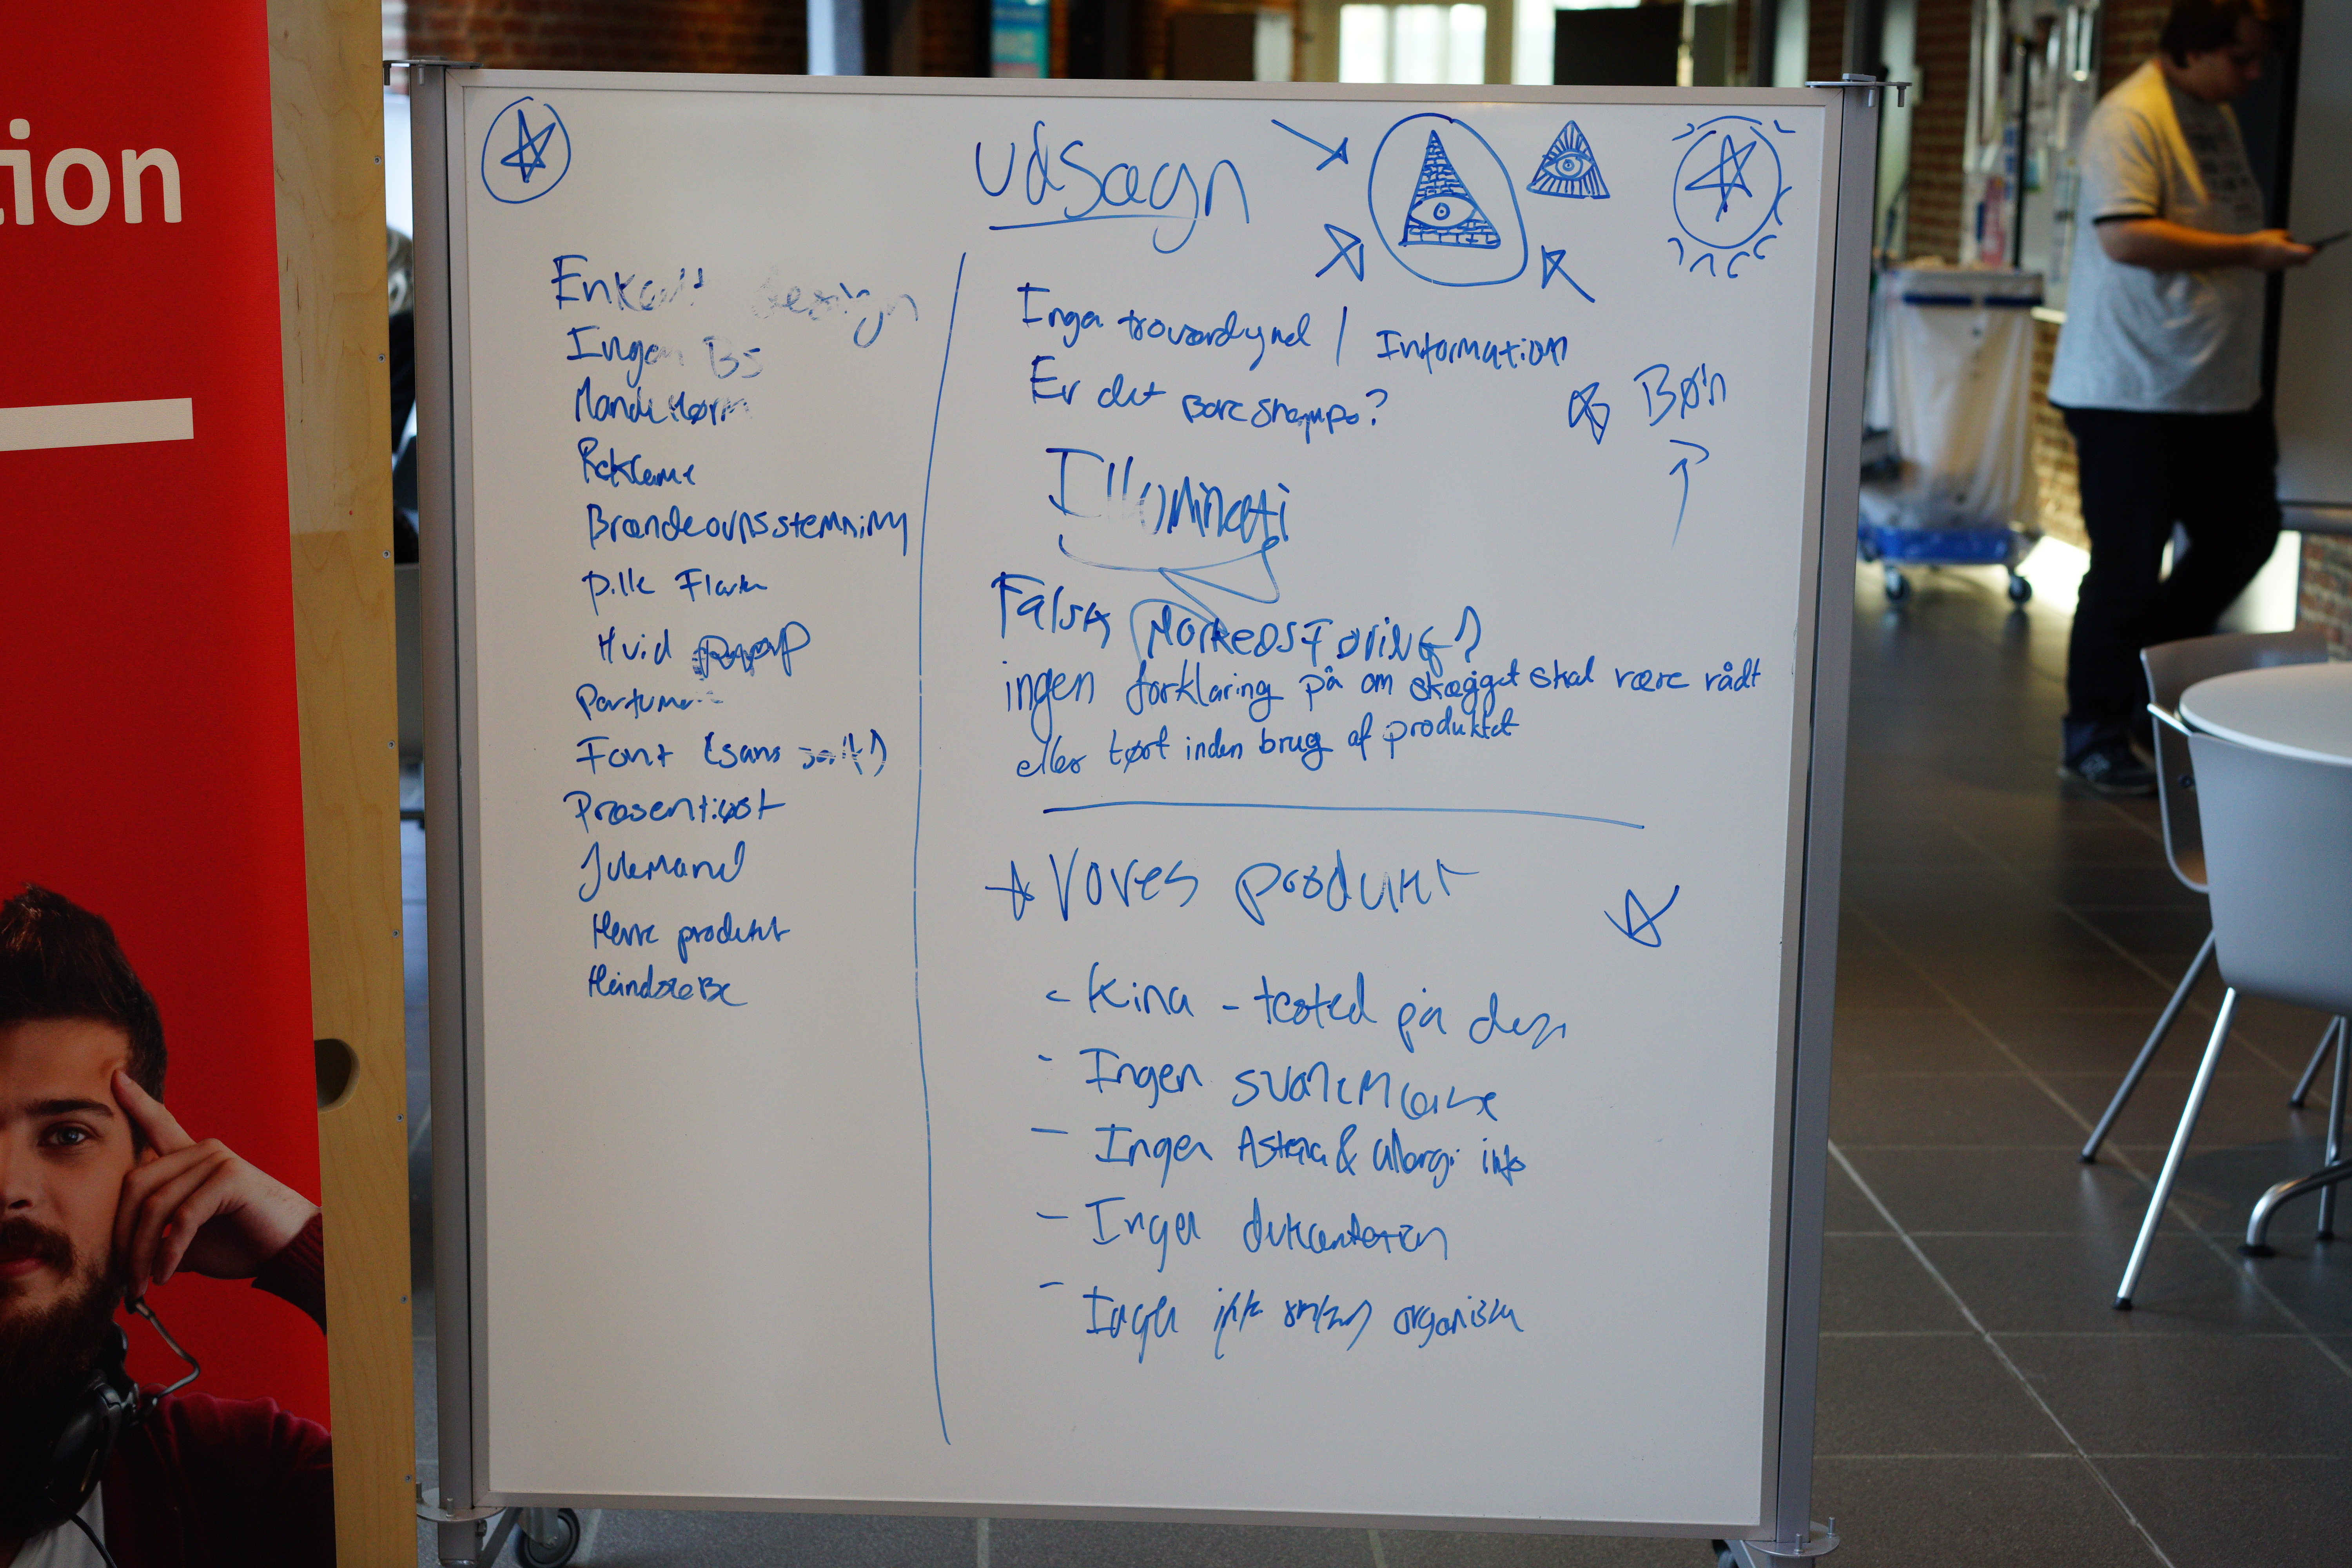 tion
udsagn
Enkelt design
Ingen BS
Reklame
Brændeovnsstemning
pille
Hvid
Parfume
Font (sans
Præsentiøst
Julemand
produkt
Ingen troværdighed / Information
Er det bare shampo?
Bøn
Illuminati
Falsk Markedsføring?
ingen forklaring på om skægget skal være vådt
eller tørt inden brug af produktet
Vores produkt
- Kina - tested på
- Ingen svanemærke
- Ingen Astma & allergi info
- Ingen
- Ingen